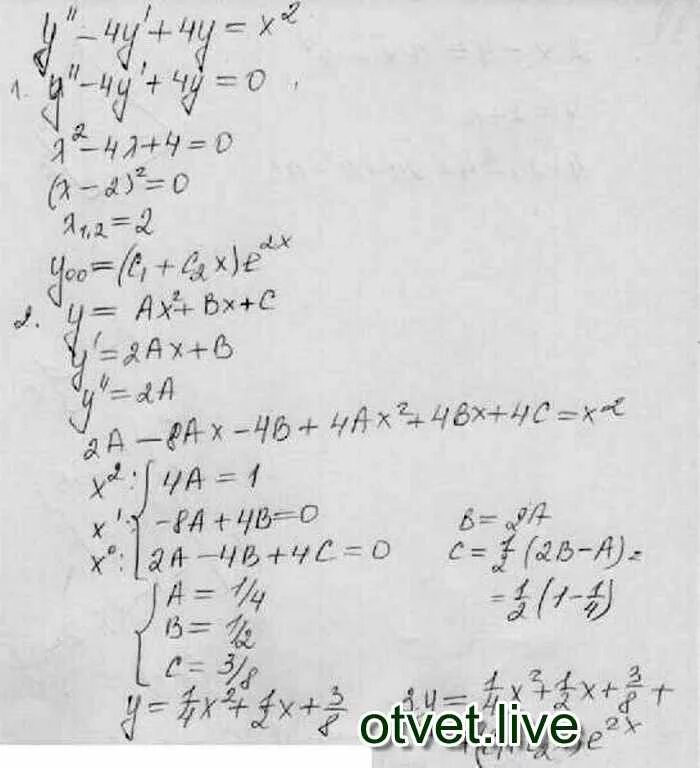 y'' - 4y' + 4y = x²
1. y'' - 4y' + 4y = 0
λ² - 4λ + 4 = 0
(λ - 2)² = 0
λ₁,₂ = 2
y₀₀ = (C₁ + C₂x)e²ˣ
2. y = Ax² + Bx + C
y' = 2Ax + B
y'' = 2A
2A - 8Ax - 4B + 4Ax² + 4Bx + 4C = x²
x²: { 4A = 1
x¹: { -8A + 4B = 0
x⁰: { 2A - 4B + 4C = 0
B = 2A
C = 1/2 (2B - A) =
= 1/2 (1 - 1/4)
{ A = 1/4
B = 1/2
C = 3/8
y = 1/4 x² + 1/2 x + 3/8
3. y = 1/4 x² + 1/2 x + 3/8 +
e²ˣ
otvet.live